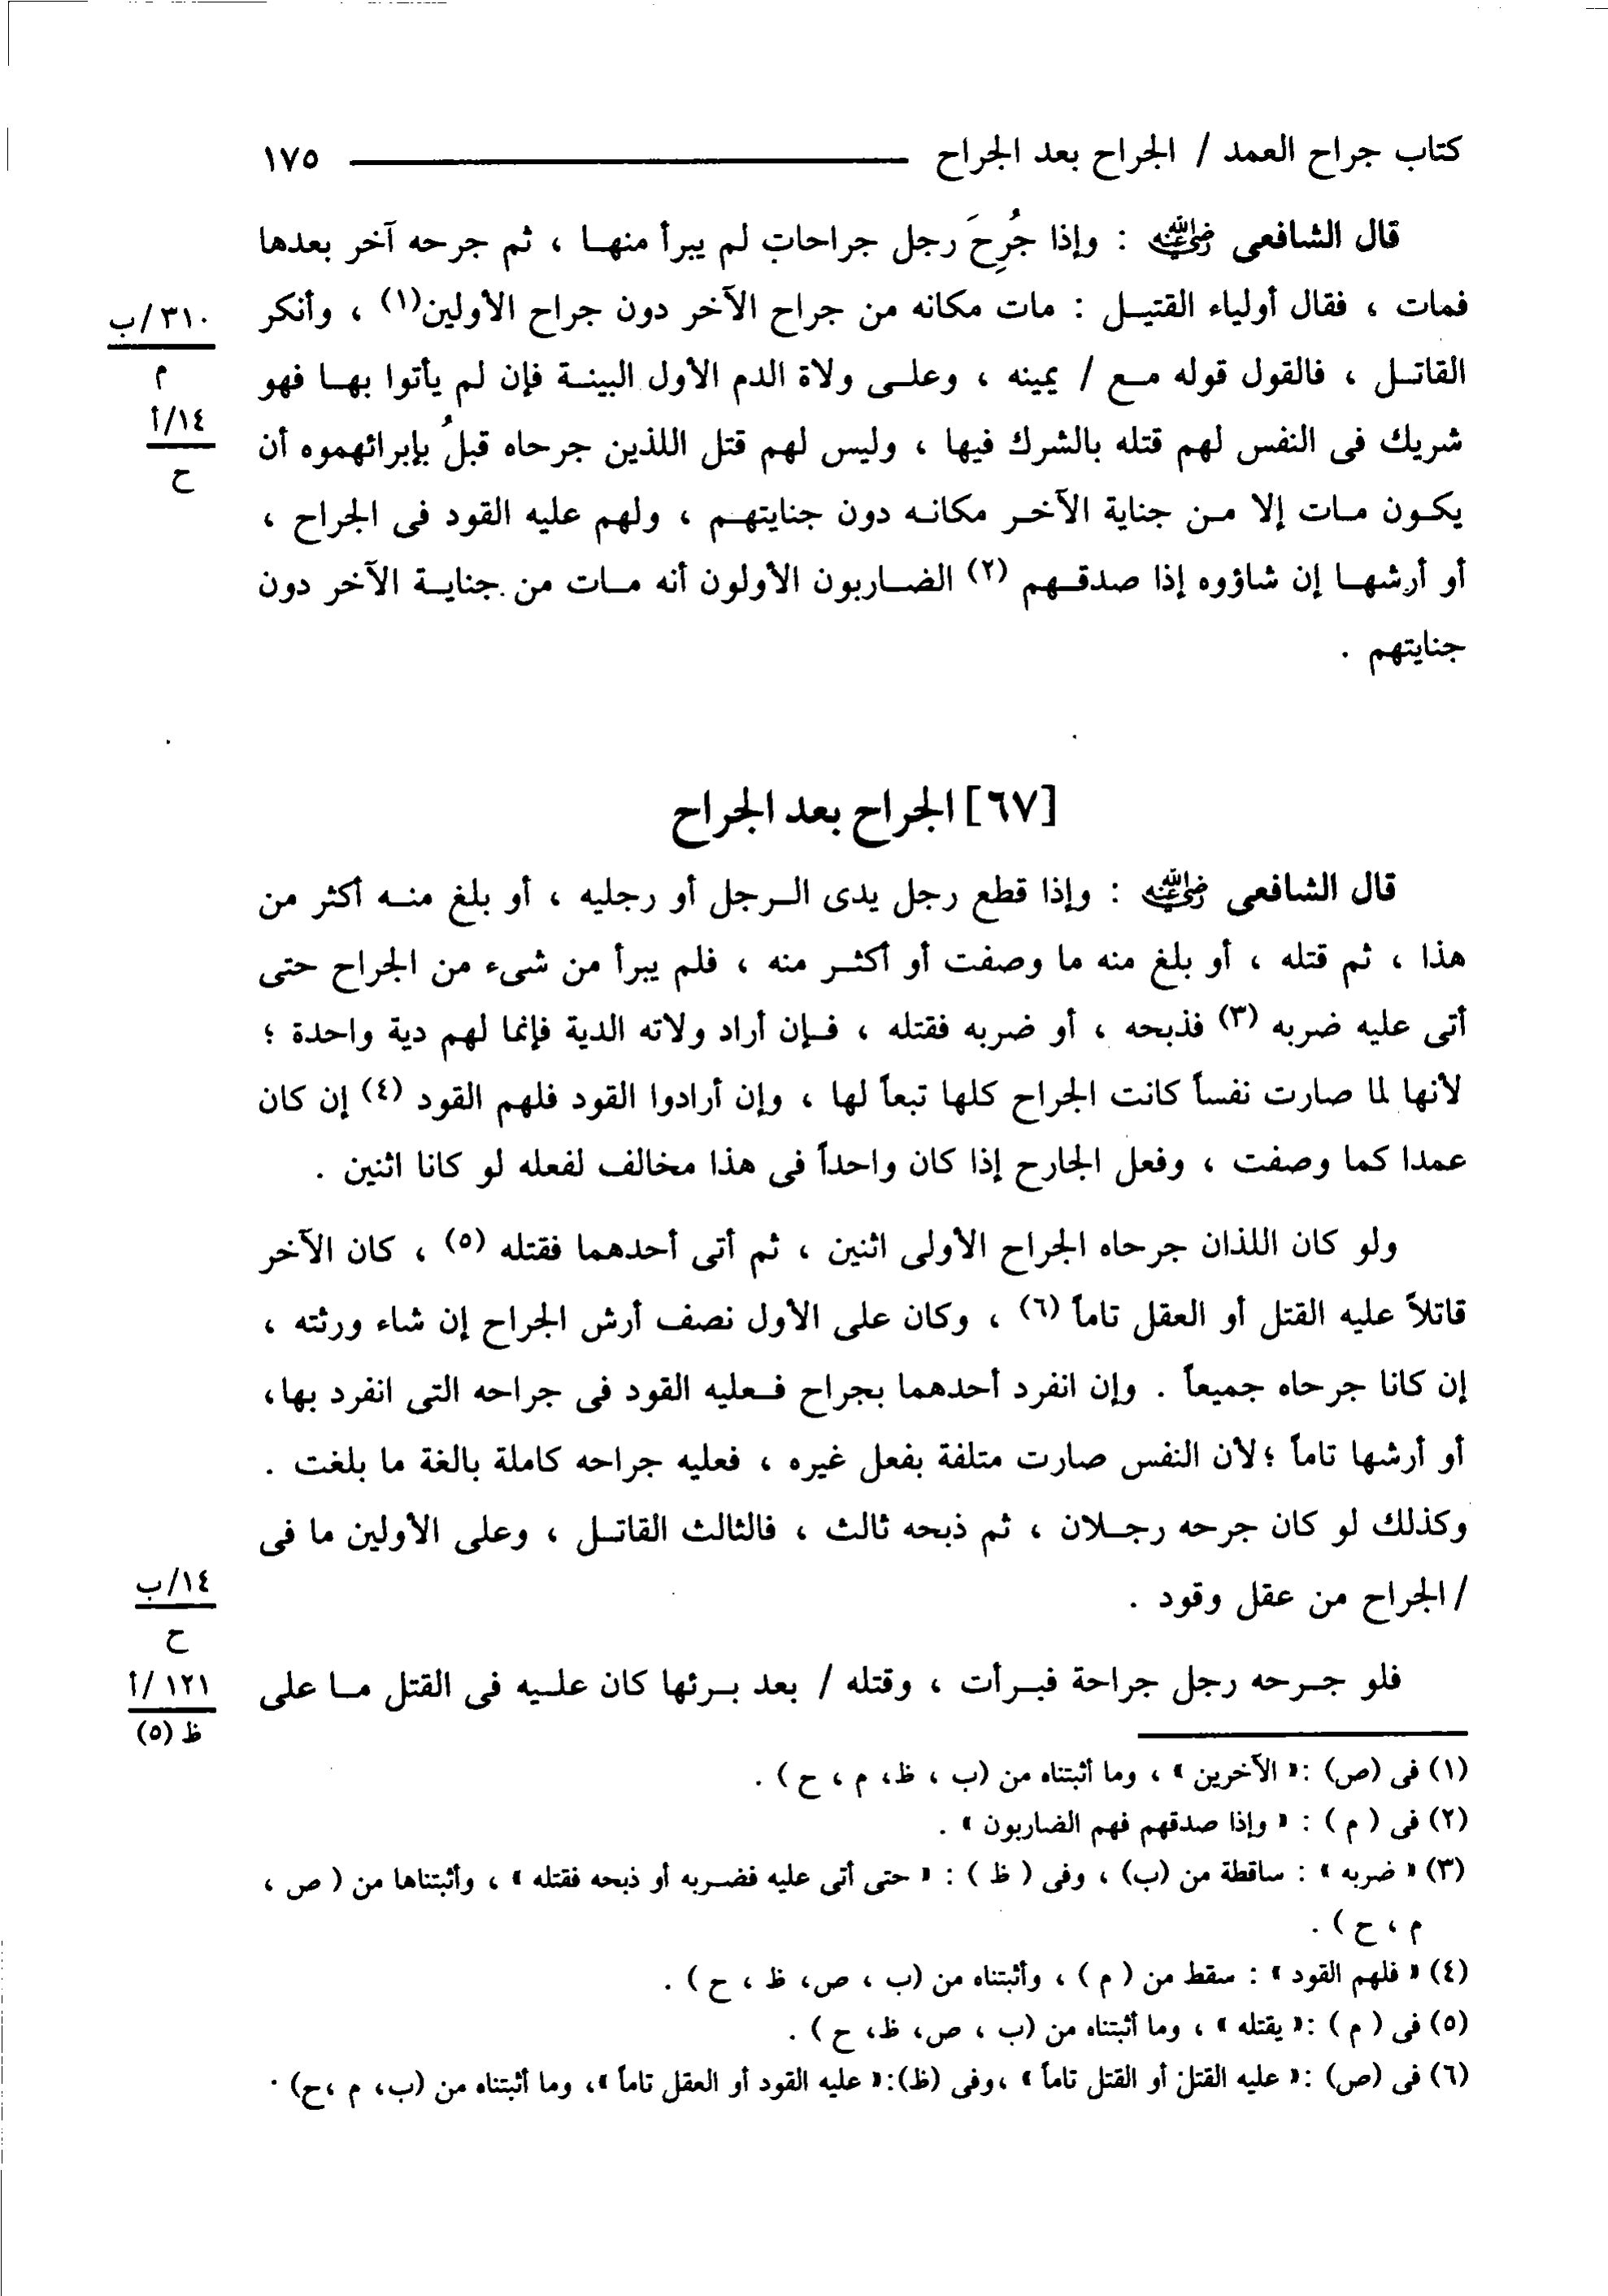 كتاب جراح العمد / الجراح بعد الجراح ١٧٥
قال الشافعى رضي الله عنه : وإذا جُرِحَ رجل جراحات لم يبرأ منها ، ثم جرحه آخر بعدها
فمات ، فقال أولياء القتيل : مات مكانه من جراح الآخر دون جراح الأولين(١) ، وأنكر
٣١٠/ب
م
القاتل ، فالقول قوله مع / يمينه ، وعلى ولاة الدم الأول البينة فإن لم يأتوا بها فهو
١٤/أ
ح
شريك فى النفس لهم قتله بالشرك فيها ، وليس لهم قتل اللذين جرحاه قبلُ بإبرائهموه أن
يكون مات إلا من جناية الآخر مكانه دون جنايتهم ، ولهم عليه القود فى الجراح ،
أو أرشها إن شاؤوه إذا صدقهم (٢) الضاربون الأولون أنه مات من جناية الآخر دون
جنايتهم .
[٦٧] الجراح بعد الجراح
قال الشافعى رضي الله عنه : وإذا قطع رجل يدى الرجل أو رجليه ، أو بلغ منه أكثر من
هذا ، ثم قتله ، أو بلغ منه ما وصفت أو أكثر منه ، فلم يبرأ من شىء من الجراح حتى
أتى عليه ضربه (٣) فذبحه ، أو ضربه فقتله ، فإن أراد ولاته الدية فإنما لهم دية واحدة ؛
لأنها لما صارت نفساً كانت الجراح كلها تبعاً لها ، وإن أرادوا القود فلهم القود (٤) إن كان
عمدا كما وصفت ، وفعل الجارح إذا كان واحداً فى هذا مخالف لفعله لو كانا اثنين .
ولو كان اللذان جرحاه الجراح الأولى اثنين ، ثم أتى أحدهما فقتله (٥) ، كان الآخر
قاتلاً عليه القتل أو العقل تاماً (٦) ، وكان على الأول نصف أرش الجراح إن شاء ورثته ،
إن كانا جرحاه جميعاً . وإن انفرد أحدهما بجراح فعليه القود فى جراحه التى انفرد بها،
أو أرشها تاماً ؛ لأن النفس صارت متلفة بفعل غيره ، فعليه جراحه كاملة بالغة ما بلغت .
وكذلك لو كان جرحه رجلان ، ثم ذبحه ثالث ، فالثالث القاتل ، وعلى الأولين ما فى
١٤/ب
ح
/ الجراح من عقل وقود .
١٢١/أ
ظ (٥)
فلو جرحه رجل جراحة فبرأت ، وقتله / بعد برئها كان عليه فى القتل ما على
(١) فى (ص) :« الآخرين » ، وما أثبتناه من (ب ، ظ، م ، ح ) .
(٢) فى ( م ) : « وإذا صدقهم فهم الضاربون » .
(٣) « ضربه » : ساقطة من (ب) ، وفى ( ظ ) : « حتى أتى عليه فضربه أو ذبحه فقتله » ، وأثبتناها من ( ص ،
م ، ح ) .
(٤) « فلهم القود » : سقط من ( م ) ، وأثبتناه من (ب ، ص، ظ ، ح ) .
(٥) فى ( م ) :« يقتله » ، وما أثبتناه من (ب ، ص، ظ، ح ) .
(٦) فى (ص) :« عليه القتل أو القتل تاماً » ،وفى (ظ):« عليه القود أو العقل تاماً »، وما أثبتناه من (ب، م ،ح) .